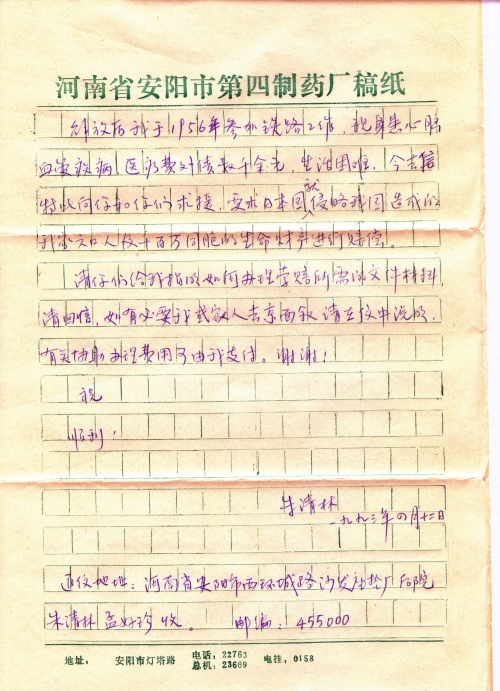 河南省安阳市第四制药厂稿纸
解放后我于1956年参加铁路工作，现身患心脑
血管疾病，医疗费对债数千余元，生活困难，今去信
特此向你和你们求援，要求日本国就侵略我国造成的
我家六口人及千百万同胞的生命财产进行赔偿。
请你们给我指明如何办理索赔所需的文件材料，
请回信，如有必要我或家人去京面叙请在信中说明，
有关协助办理费用可由我支付。谢谢！
祝
顺利！
朱清林
一九九三年四月十二日
通信地址：河南省安阳市西环城路沙发座垫厂后院
朱清林 孟好珍 收。 邮编：455000
地址： 安阳市灯塔路 电话：22763 总机：23669 电挂：0158